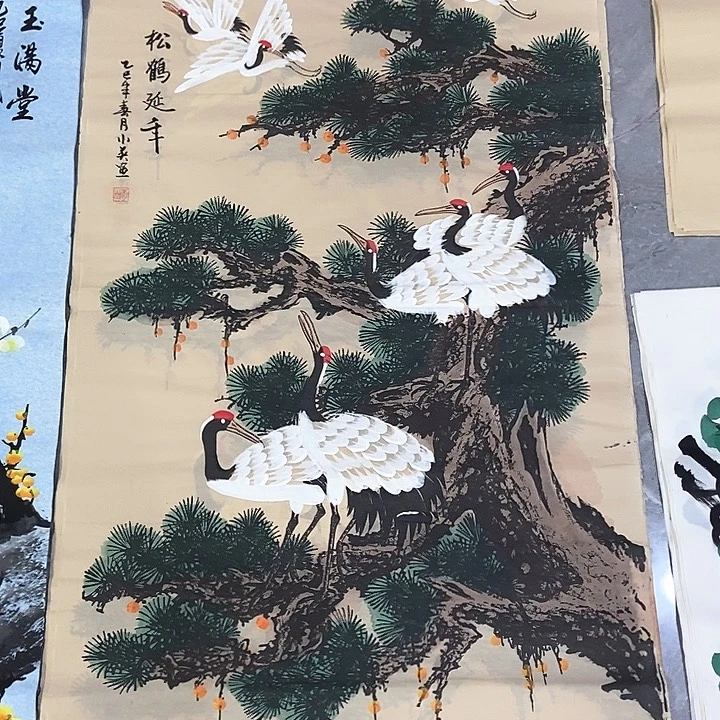 松鶴延年
乙巳年春月小英画
玉满堂